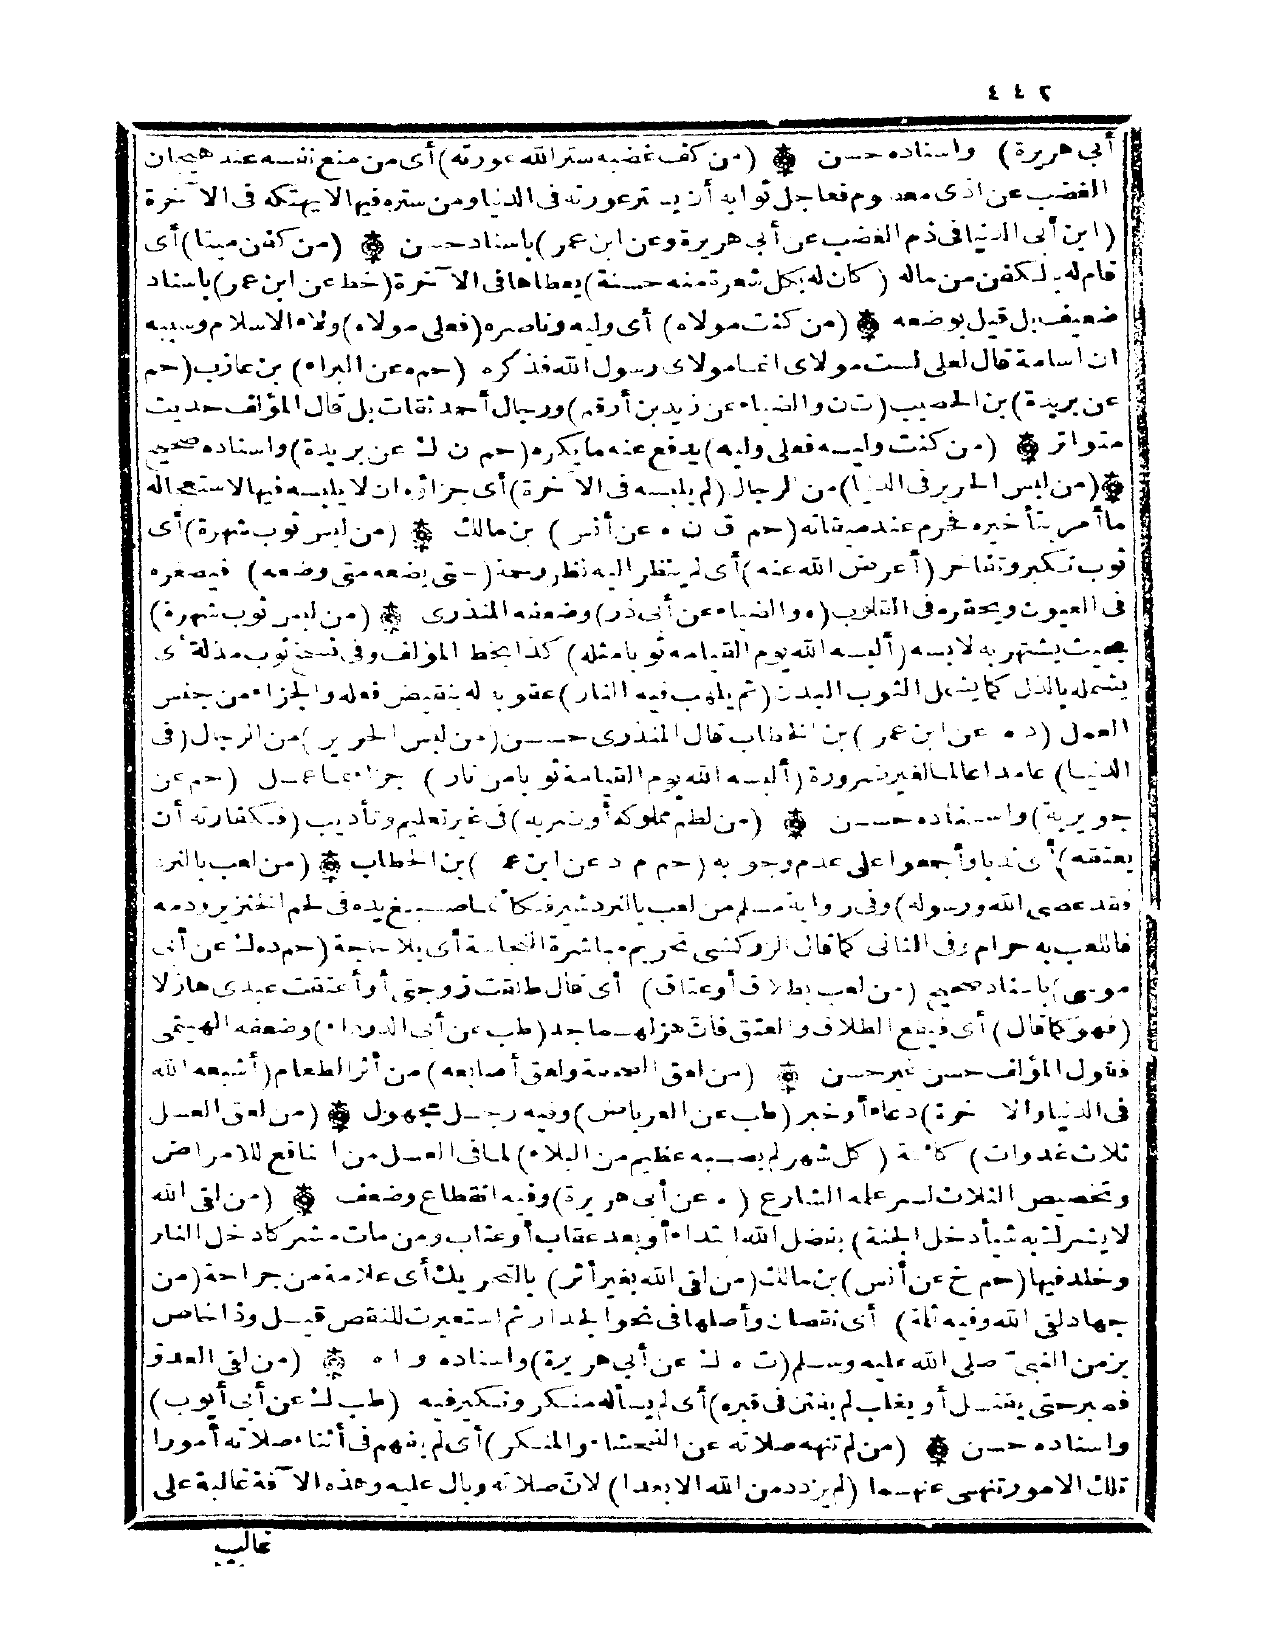 ٤٤٢
أبي هريرة) واسناده حسن (من كف غضبه ستر الله عورته) أى من منع نفسه عند هيجان
الغضب عن اذى معصوم فعاجل ثوابه أن يستر عورته فى الدنيا ومن ستره فيها لا يهتكه فى الآخرة
(ابن أبى الدنيا فى ذم الغضب عن أبي هريرة وعن ابن عمر) باسناد حسن (من كفن ميتا) أى
قام له بكفن من ماله (كان له بكل شعرة منه حسنة) يعطاها فى الآخرة (خط عن ابن عمر) باسناد
ضعيف بل قيل بوضعه (من كنت مولاه) أى وليه وناصره (فعلى مولاه) ولاء الاسلام وسببه
ان اسامة قال لعلى لست مولاى انما مولاى رسول الله فذكره (حم ه عن البراء) بن عازب (حم
عن بريدة) بن الحصيب (ت ن والضياء عن زيد بن أرقم) ورجال أحمد ثقات بل قال المؤلف حديث
متواتر (من كنت وليه فعلى وليه) يدفع عنه ما يكره (حم ن ك عن بريدة) واسناده صحيح
(من لبس الحرير فى الدنيا) من الرجال (لم يلبسه فى الآخرة) أى جزاؤه ان لا يلبسه فيها لاستعجاله
ما أمر بتأخيره فحرم عند ميقاته (حم ق ن ه عن أنس) بن مالك (من لبس ثوب شهرة) أى
ثوب تكبر وتفاخر (أعرض الله عنه) أى لم ينظر اليه نظر رحمة (حتى يضعه متى وضعه) فيصغره
فى العيون ويحقره فى القلوب (ه والضياء عن أبى ذر) وضعفه المنذرى (من لبس ثوب شهرة)
بحيث يشتهر به لابسه (ألبسه الله يوم القيامة ثوبا مثله) كذا بخط المؤلف وفى نسخ ثوب مذلة أى
يشمله بالذل كما يشمل الثوب البدن (ثم يلهب فيه النار) عقوبة له بنقيض فعله والجزاء من جنس
العمل (د ه عن ابن عمر) بن الخطاب قال المنذرى حسن (من لبس الحرير) من الرجال (فى
الدنيا) عامدا عالما لغير ضرورة (ألبسه الله يوم القيامة ثوبا من نار) جزاء بما عمل (حم عن
جويرية) واسناده حسن (من لطم مملوكه أو ضربه) فى غير تعليم وتأديب (فكفارته أن
يعتقه) أى ندبا وأجمعوا على عدم وجوبه (حم م د عن ابن عمر) بن الخطاب (من لعب بالنرد
فقد عصى الله ورسوله) وفى رواية مسلم من لعب بالنردشير فكأنما صبغ يده فى لحم الخنزير ودمه
فاللعب به حرام وفى الثانى كما قال الزركشى تحريم مباشرة النجاسة أى بلا حاجة (حم د ه ك عن أبى
موسى) باسناد صحيح (من لعب بطلاق أو عتاق) أى قال طلقت زوجتى أو أعتقت عبدى هازلا
(فهو كما قال) أى فيقع الطلاق والعتق فان هزلهما جد (طب عن أبى الدرداء) وضعفه الهيثمى
فقول المؤلف حسن غير حسن (من لعق الصحفة ولعق أصابعه) من أثر الطعام (أشبعه الله
فى الدنيا والآخرة) دعاء أو خبر (طب عن العرباض) وفيه رجل مجهول (من لعق العسل
ثلاث غدوات) كائنة (كل شهر لم يصبه عظيم من البلاء) لما فى العسل من المنافع للامراض
وتخصيص الثلاث لسر علمه الشارع (ه عن أبى هريرة) وفيه انقطاع وضعف (من لقى الله
لا يشرك به شيأ دخل الجنة) بفضل الله ابتداء أو بعد عقاب أو عتاب ومن مات مشركا دخل النار
وخلد فيها (حم خ عن أنس) بن مالك (من لقى الله بغير أثر) بالتحريك أى علامة من جراحة (من
جهاد لقى الله وفيه ثلمة) أى نقصان وأصلها فى نحو الجدار ثم استعيرت للنقص قيل وذا خاص
بزمن النبى صلى الله عليه وسلم (ت ه ك عن أبي هريرة) واسناده واه (من لقى العدو
فصبر حتى يقتل أو يغلب لم يفتن فى قبره) أى لم يسأله منكر ونكير فيه (طب ك عن أبى أيوب)
واسناده حسن (من لم تنهه صلاته عن الفحشاء والمنكر) أى لم يفهم فى أثناء صلاته أمورا
تلك الامور تنهى عنهما (لم يزدد من الله الا بعدا) لان صلاته وبال عليه وهذه الآفة غالبة على
غالب